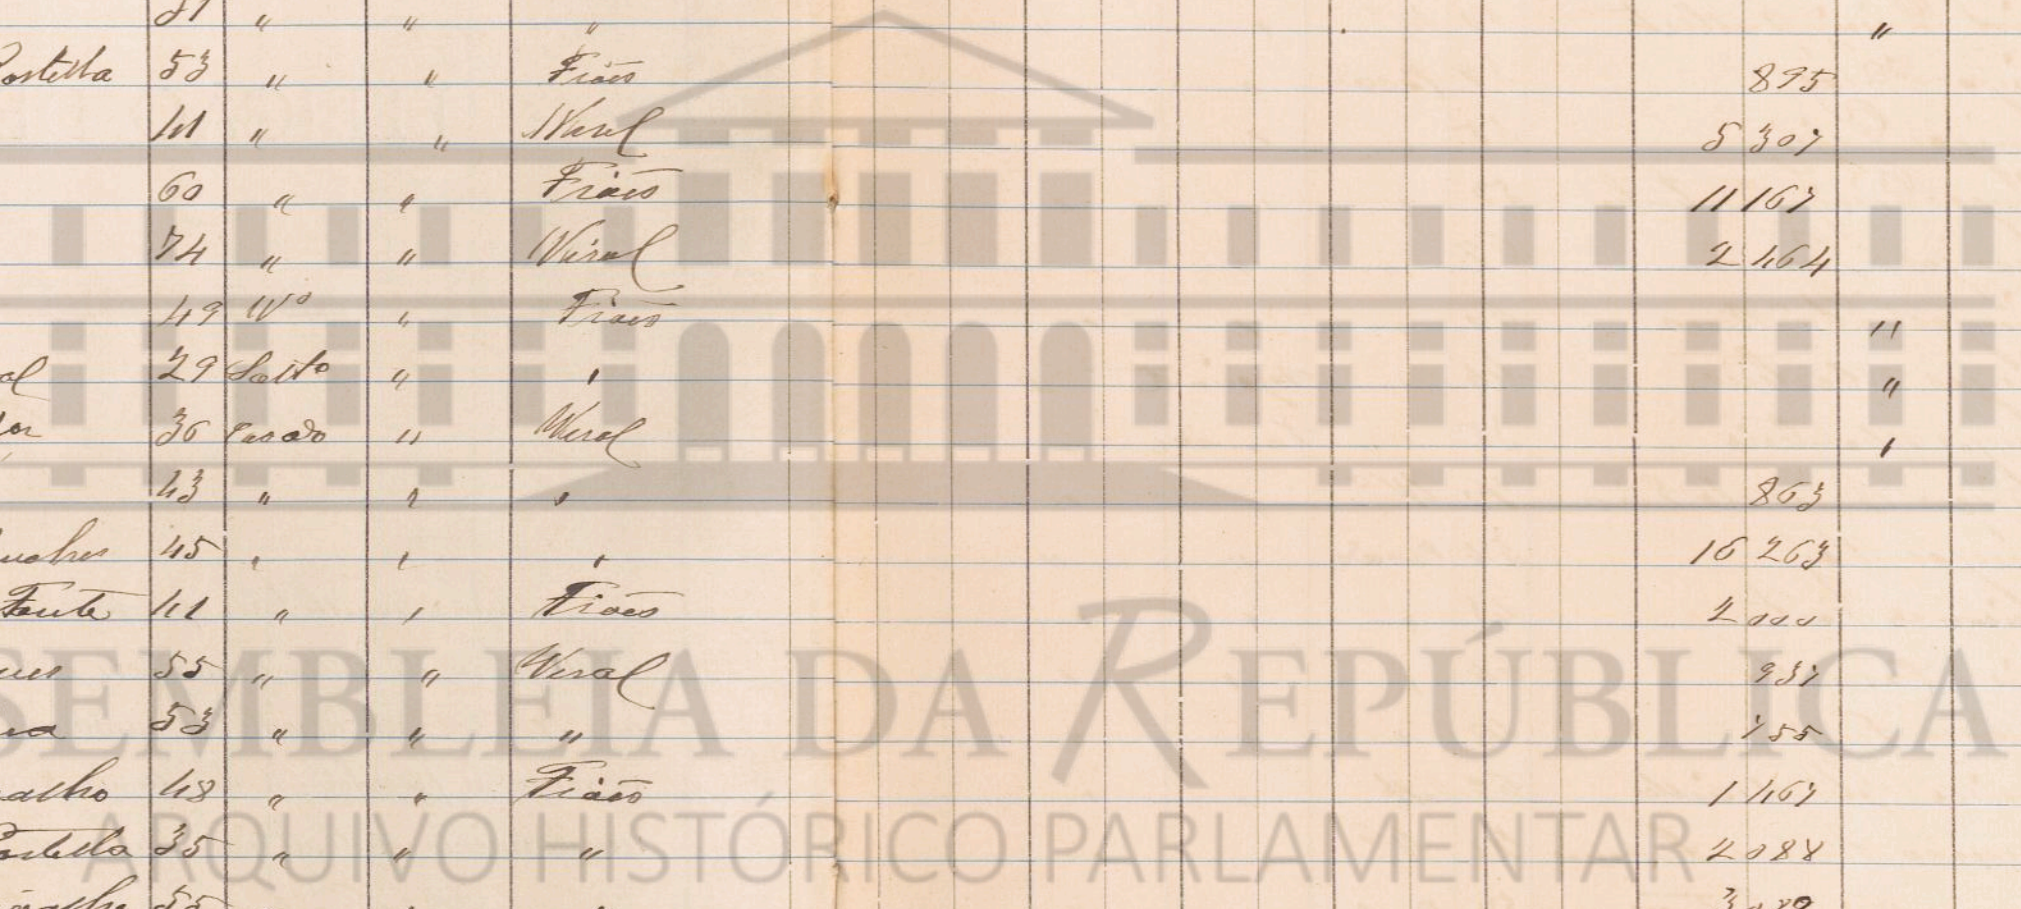 " " " "
Portella 53 " " Fiães 895
41 " " Viral 5 307
60 " " Fiães 11 167
74 " " Viral 2 464
49 Vº " Fiães "
29 Soltº " " "
36 Casado " Viral "
43 " " " 863
45 " " " 16 263
Fonte 41 " " Fiães 2 000
55 " " Viral 937
53 " " " 755
48 " " Fiães 1 467
Portella 35 " " " 2 088
55 " "
ASSEMBLEIA DA REPÚBLICA
ARQUIVO HISTÓRICO PARLAMENTAR